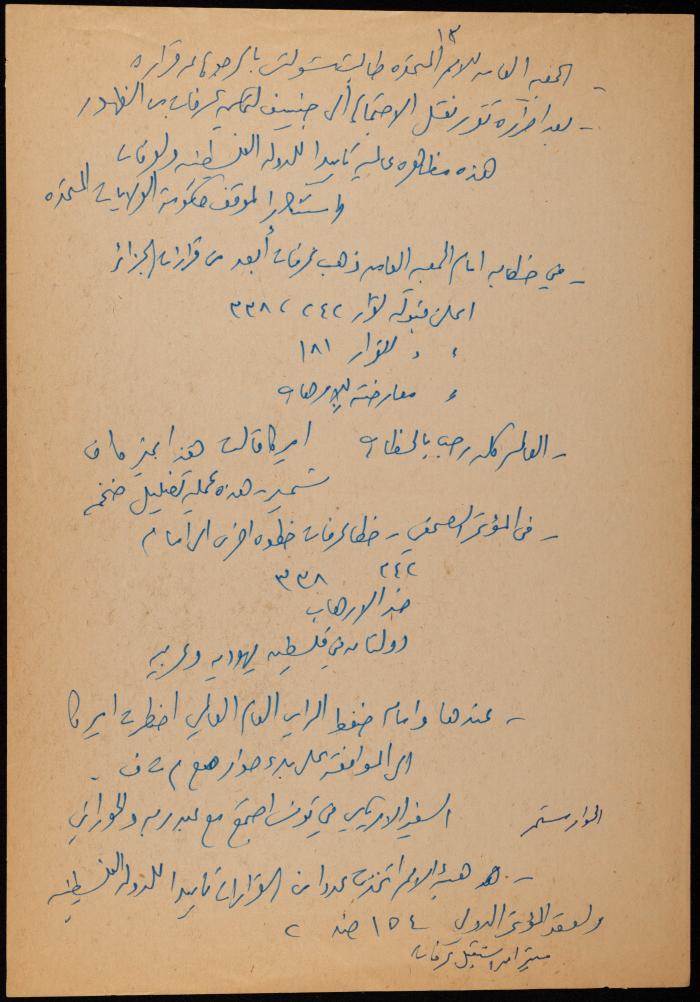 ١٣
- الجمعية العامه للامم المتحدة طالبت شولتس بالرجوع عن قراره
- بعد اخراره تقرر نقل الاجتماع الى جنيف لتمكين عرفات من الظهور
هذه مظاهره عالميه تاييدا للدوله الفلسطينيه ولعرفات
واستنكارا لموقف حكومة الولايات المتحده
- في خطابه امام الجمعيه العامه ذهب عرفات أبعد من قرارات الجزائر
اعلن قبوله لقرار ٢٤٢ ، ٣٣٨
، ، للقرار ١٨١
، معارضته للارهاب
- العالم كله رحب بالخطاب امريكا قالت هذا غير كاف
شمير - هذه عملية تضليل ضخمه
- في المؤتمر الصحفي - خطا عرفات خطوه اخرى الى امام
٢٤٢ ٣٣٨
ضد الارهاب
دولتان في فلسطين يهوديه وعربيه
- عندها وامام ضغط الراي العام العالمي اضطرت اميركا
الى الموافقه على بدء حوار مع م ت ف
السفير الامريكي في تونس اجتمع مع عبد ربه والحوراني
الحوار مستمر
- هيئة الامم اتخذت عددا من القرارات تاييدا للدوله الفلسطينيه
ولعقد المؤتمر الدولي ١٥٤ ضد ٢
استقبل عرفات